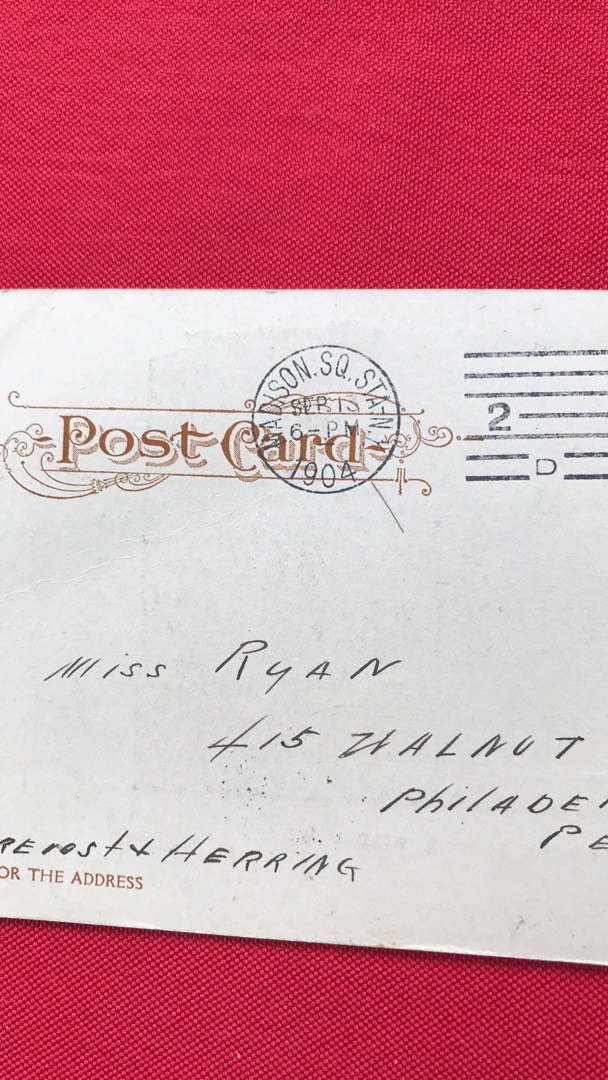 MADISON.SQ.STA-N.Y.
SEP 13
6-PM
1904
2
D
Post Card
Miss RyAN
415 WALNUT
PhilADE
PE
REvost & HERRING
OR THE ADDRESS